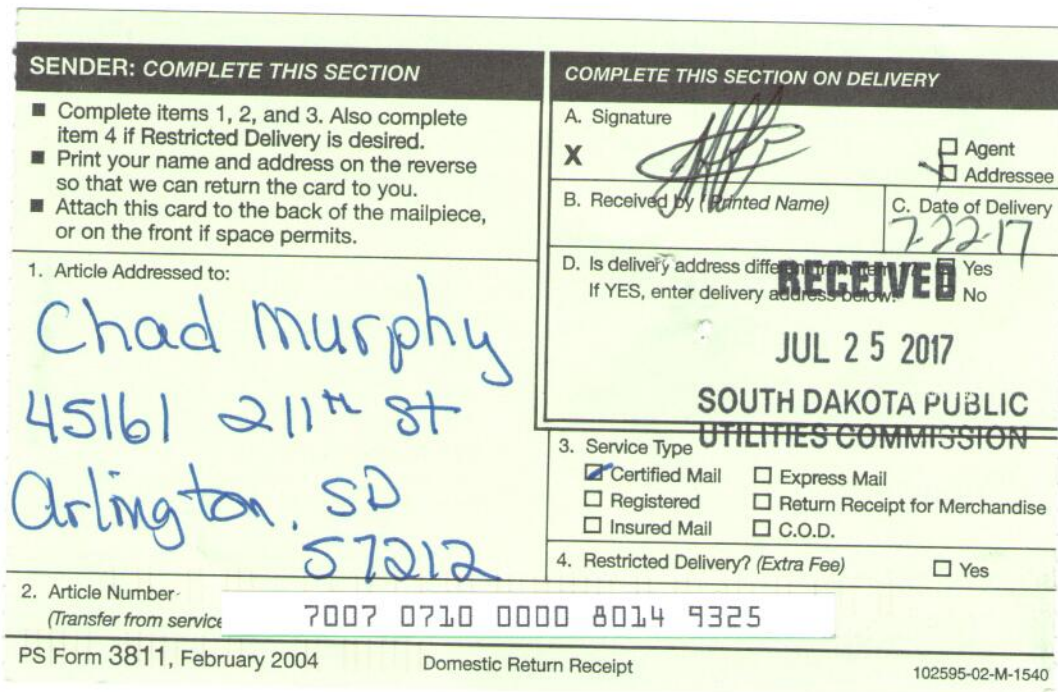 SENDER: COMPLETE THIS SECTION
■ Complete items 1, 2, and 3. Also complete
item 4 if Restricted Delivery is desired.
■ Print your name and address on the reverse
so that we can return the card to you.
■ Attach this card to the back of the mailpiece,
or on the front if space permits.
1. Article Addressed to:
Chad Murphy
45161 211th St
Arlington, SD
57212
2. Article Number
(Transfer from service
7007 0710 0000 8014 9325
PS Form 3811, February 2004
Domestic Return Receipt
102595-02-M-1540
COMPLETE THIS SECTION ON DELIVERY
A. Signature
X
☐ Agent
☐ Addressee
B. Received by (Printed Name)
C. Date of Delivery
7-22-17
D. Is delivery address different from item Yes
If YES, enter delivery address below: No
RECEIVED
JUL 25 2017
SOUTH DAKOTA PUBLIC
UTILITIES COMMISSION
3. Service Type
☑ Certified Mail ☐ Express Mail
☐ Registered ☐ Return Receipt for Merchandise
☐ Insured Mail ☐ C.O.D.
4. Restricted Delivery? (Extra Fee) ☐ Yes